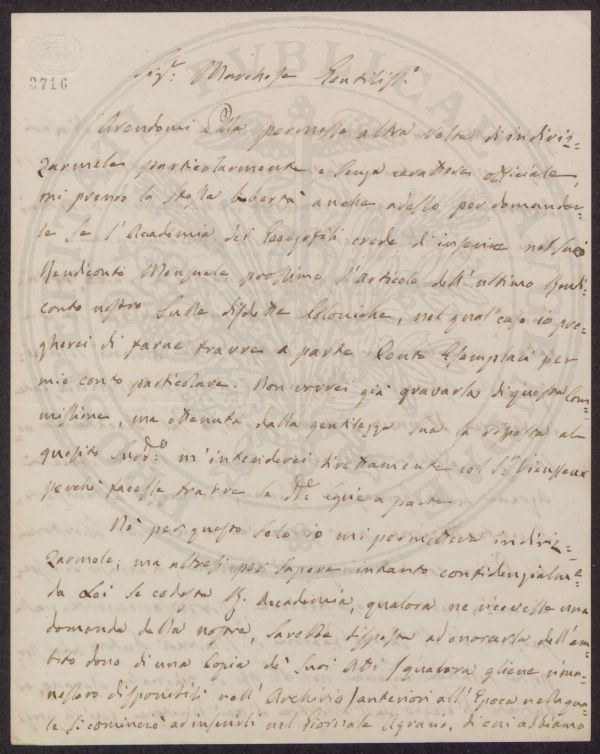 2716
Sig.r Marchese Gentiliss.o
Avendomi Ella permesso altra volta di indiriz=
zarmele particolarmente e senza carattere officiale,
mi prendo la stessa libertà anche adesso per domandar=
le se l'Accademia dei Georgofili crede di inserire nel suo
Rendiconto Mensuale prossimo l'Articolo dell'ultimo Rendi=
conto nostro sulle disdette Coloniche, nel qual caso io pre=
gherei di farne trarre a parte Cento Esemplari per
mio conto particolare. Non vorrei già gravarla di questa Com=
missione, ma ottenuta dalla gentilezza sua la risposta al
quesito sudd.o m'intenderei direttamente col S.r Vieusseux
perchè facesse trarre le d.e Copie a parte.
Nè per questo solo io mi permetteva indiriz=
zarmele, ma altresì per sapere intanto confidenzialm.e
da Lei se codesta R. Accademia, qualora ne ricevesse una
domanda dalla nostra, sarebbe disposta ad onorarla dell'am=
bito dono di una Copia de' suoi Atti (qualora gliene rima=
nessero disponibili nell'Archivio) anteriori all'Epoca nella qua=
le si cominciò ad inserirli nel Giornale Agrario, di cui abbiamo